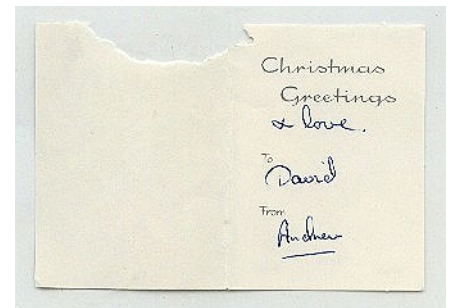 Christmas
Greetings
& love.
To
David
From
Andrew